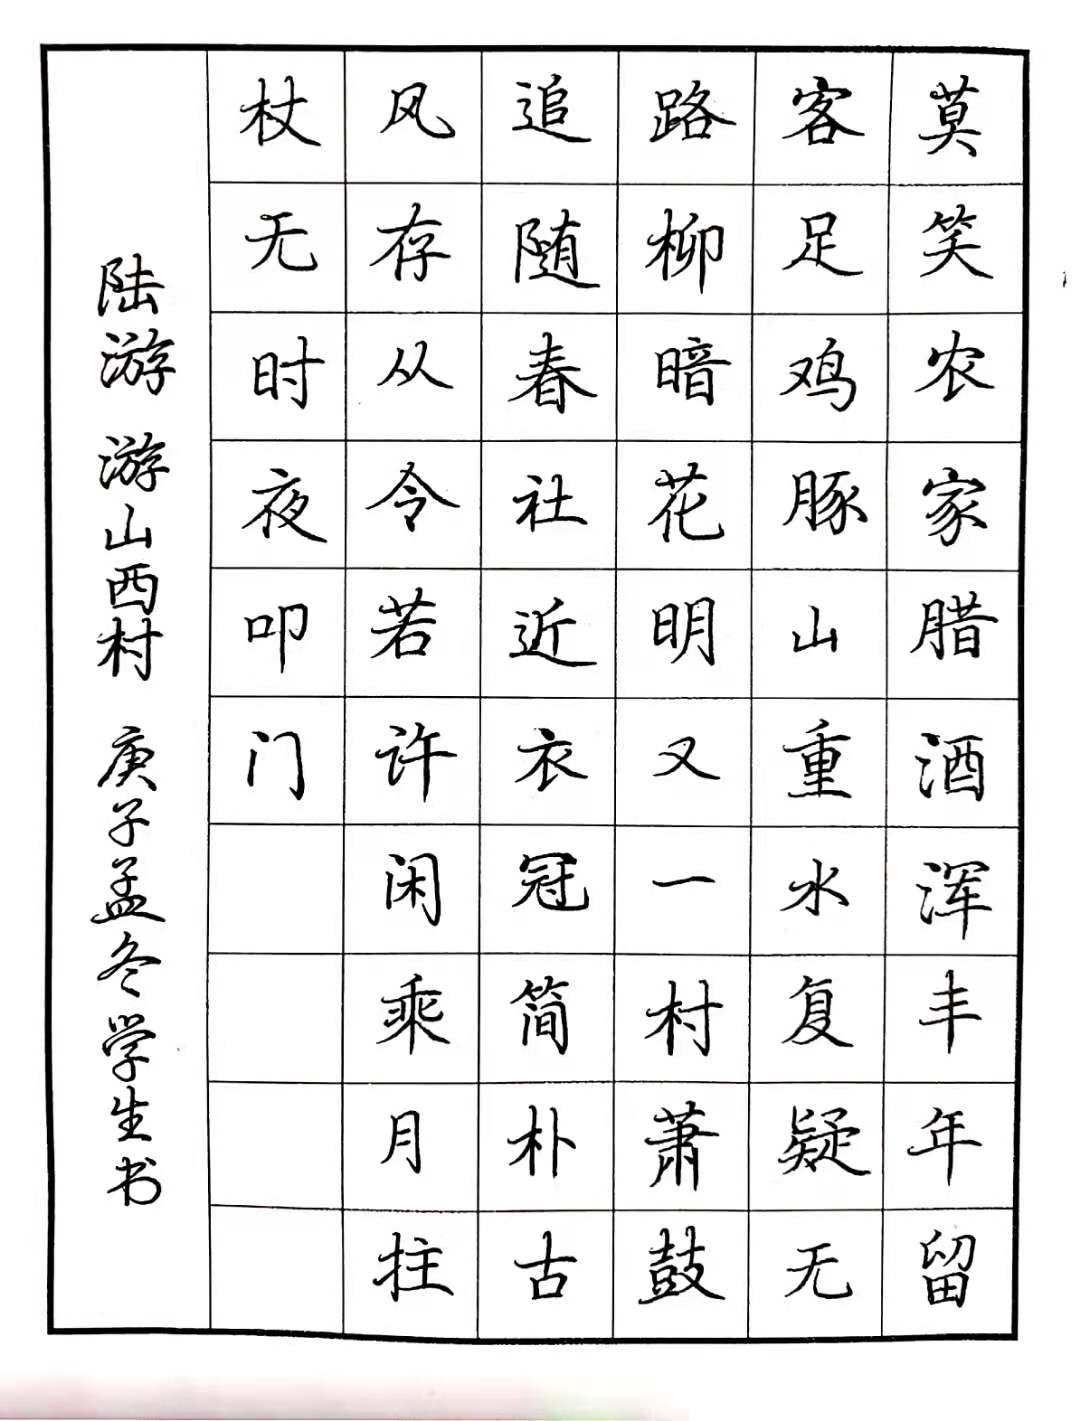 莫笑农家腊酒浑丰年留
客足鸡豚山重水复疑无
路柳暗花明又一村萧鼓
追随春社近衣冠简朴古
风存从令若许闲乘月拄
杖无时夜叩门
陆游 游山西村 庚子孟冬学生书